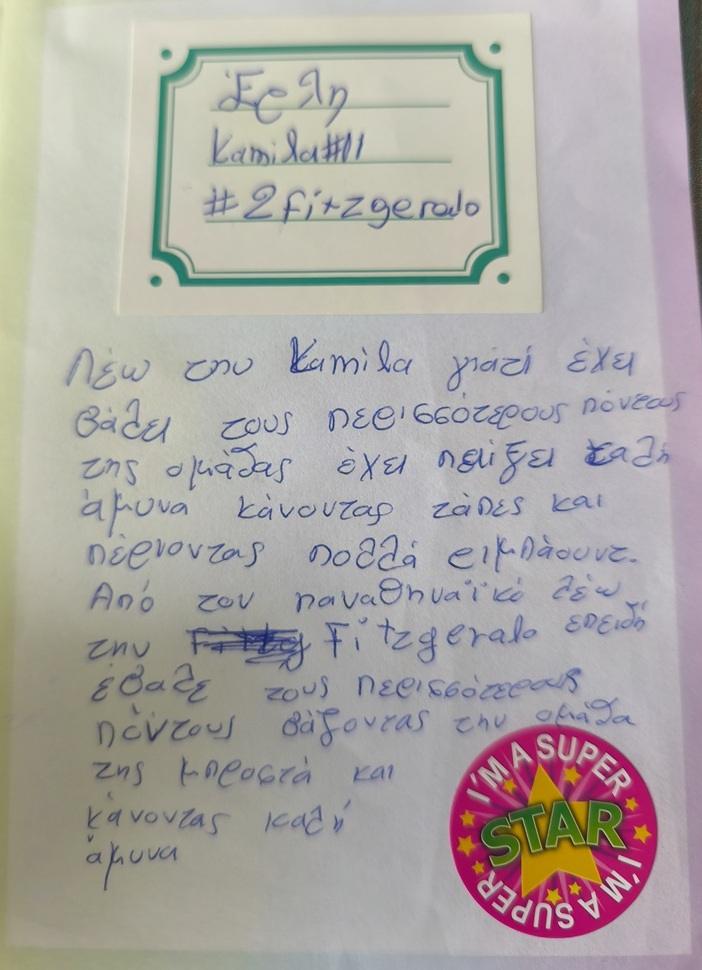 Έρλη
Kamila#11
#2Fitzgerald
Λέω την Kamila γιατί έχει
βάλει τους περισσότερους πόντους
της ομάδας έχει παίξει καλή
άμυνα κάνοντας τάπες και
πέρνοντας πολλά ριμπάουντ.
Από τον παναθηναϊκό λέω
την Fitzgerald επειδή
έβαλε τους περισσότερους
πόντους βάζοντας την ομάδα
της μπροστά και
κάνοντας καλή
άμυνα
I'M A SUPER
STAR
I'M A SUPER